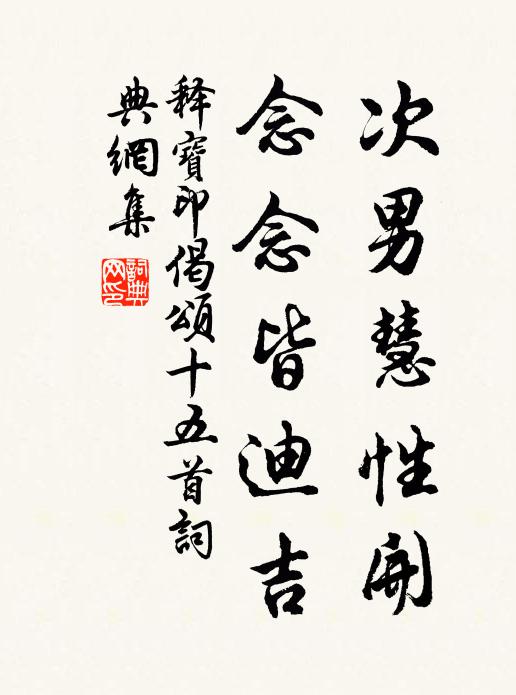 次男慧性開
念念皆迪吉
释寶印偈頌十五首詞
典網集
詞典網印